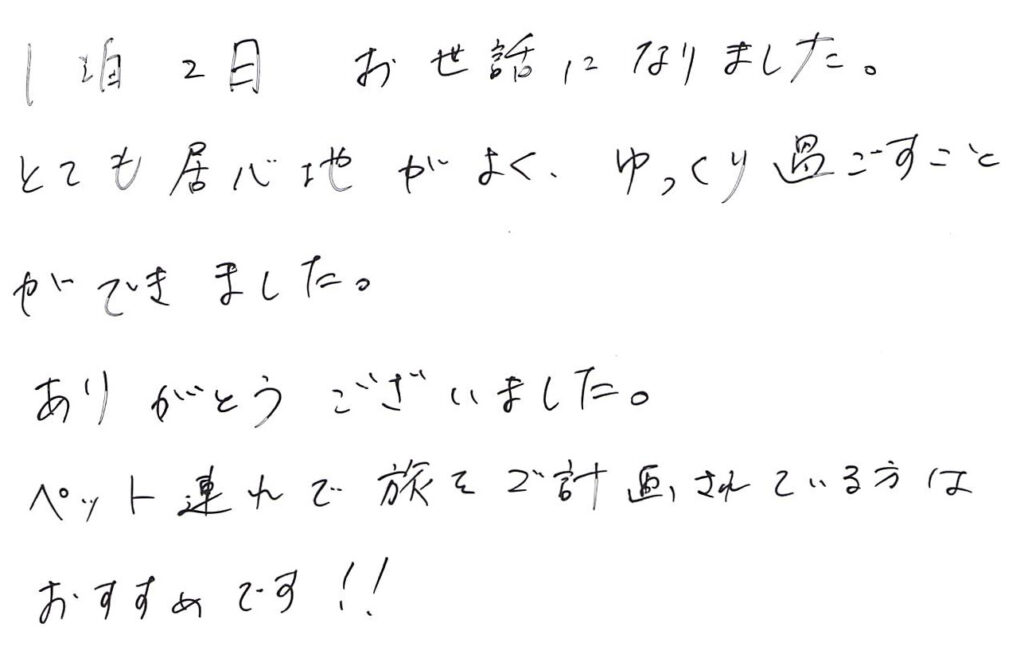 1泊2日 お世話になりました。
とても居心地がよく、ゆっくり過ごすこと
ができました。
ありがとうございました。
ペット連れで旅をご計画されている方は
おすすめです!!